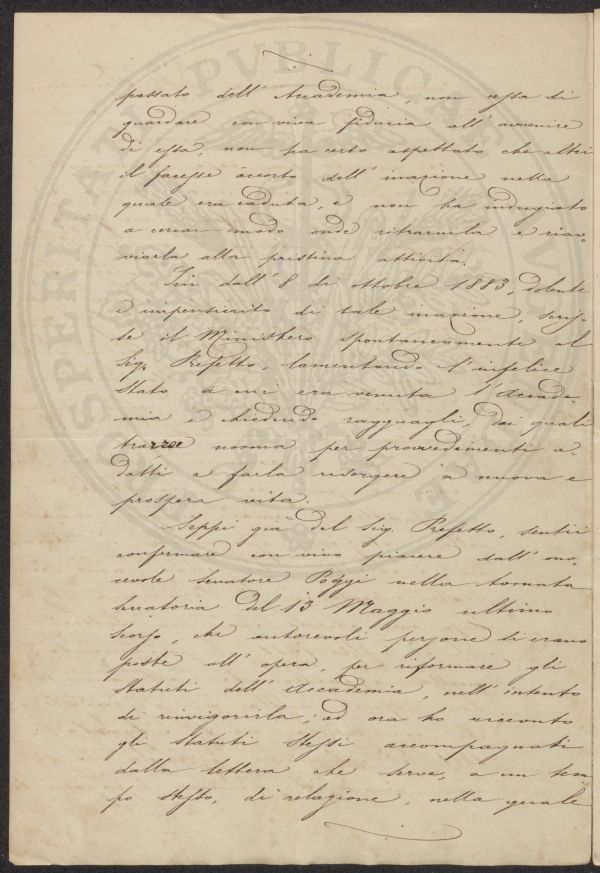 passato dell' Accademia, non cessa di
guardare con viva fiducia all' avvenire
di essa, non ha certo aspettato che altri
il facesse accorto dell' inazione nella
quale era caduta, e non ha indugiato
a cercar modo onde ritrarnela e riav-
viarla alla pristina attività.
Fin dall' 8 di ottobre 1883, dolente
e impensierito di tale inazione, scris-
se il Ministero spontaneamente al
Sig. Prefetto, lamentando l'infelice
stato a cui era venuta l'Accade-
mia e chiedendo ragguagli, dai quali
trarre norma per provvedimenti a-
datti a farla risorgere a nuova e
prospera vita.
Seppi già dal Sig. Prefetto, sentii
confermare con vivo piacere dall' ono-
revole senatore Poggi nella tornata
senatoria del 13 Maggio ultimo
scorso, che autorevoli persone si erano
poste all' opera, per riformare gli
statuti dell' Accademia, nell' intento
di rinvigorirla; ed ora ho ricevuto
gli statuti stessi accompagnati
dalla lettera che serve, a un tem
po stesso, di relazione, nella quale
PUBLICAE
PROSPERITATI